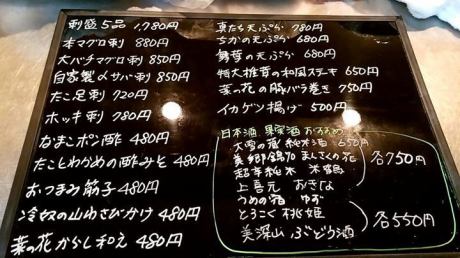 刺盛5品 1,780円
本マグロ刺 880円
大バチマグロ刺 850円
自家製〆サバ刺 850円
たこ足刺 720円
ホッキ刺 780円
なまこポン酢 480円
たことわかめの酢みそ 480円
おつまみ筋子 480円
冷奴の山わさびかけ 480円
菜の花からし和え 480円
真たち天ぷら 780円
ちかの天ぷら 680円
舞茸の天ぷら 680円
特大椎茸の和風ステーキ 650円
菜の花の豚バラ巻き 750円
イカゲソ揚げ 500円
日本酒 果実酒 おすすめ
大雪の蔵 純米酒 650円
美郷錦70 まんさくの花
超辛純米 米鶴
上喜元 おきな
各750円
うめの酒 ゆず
とろこく 桃姫
美深山 ぶどう酒
各550円